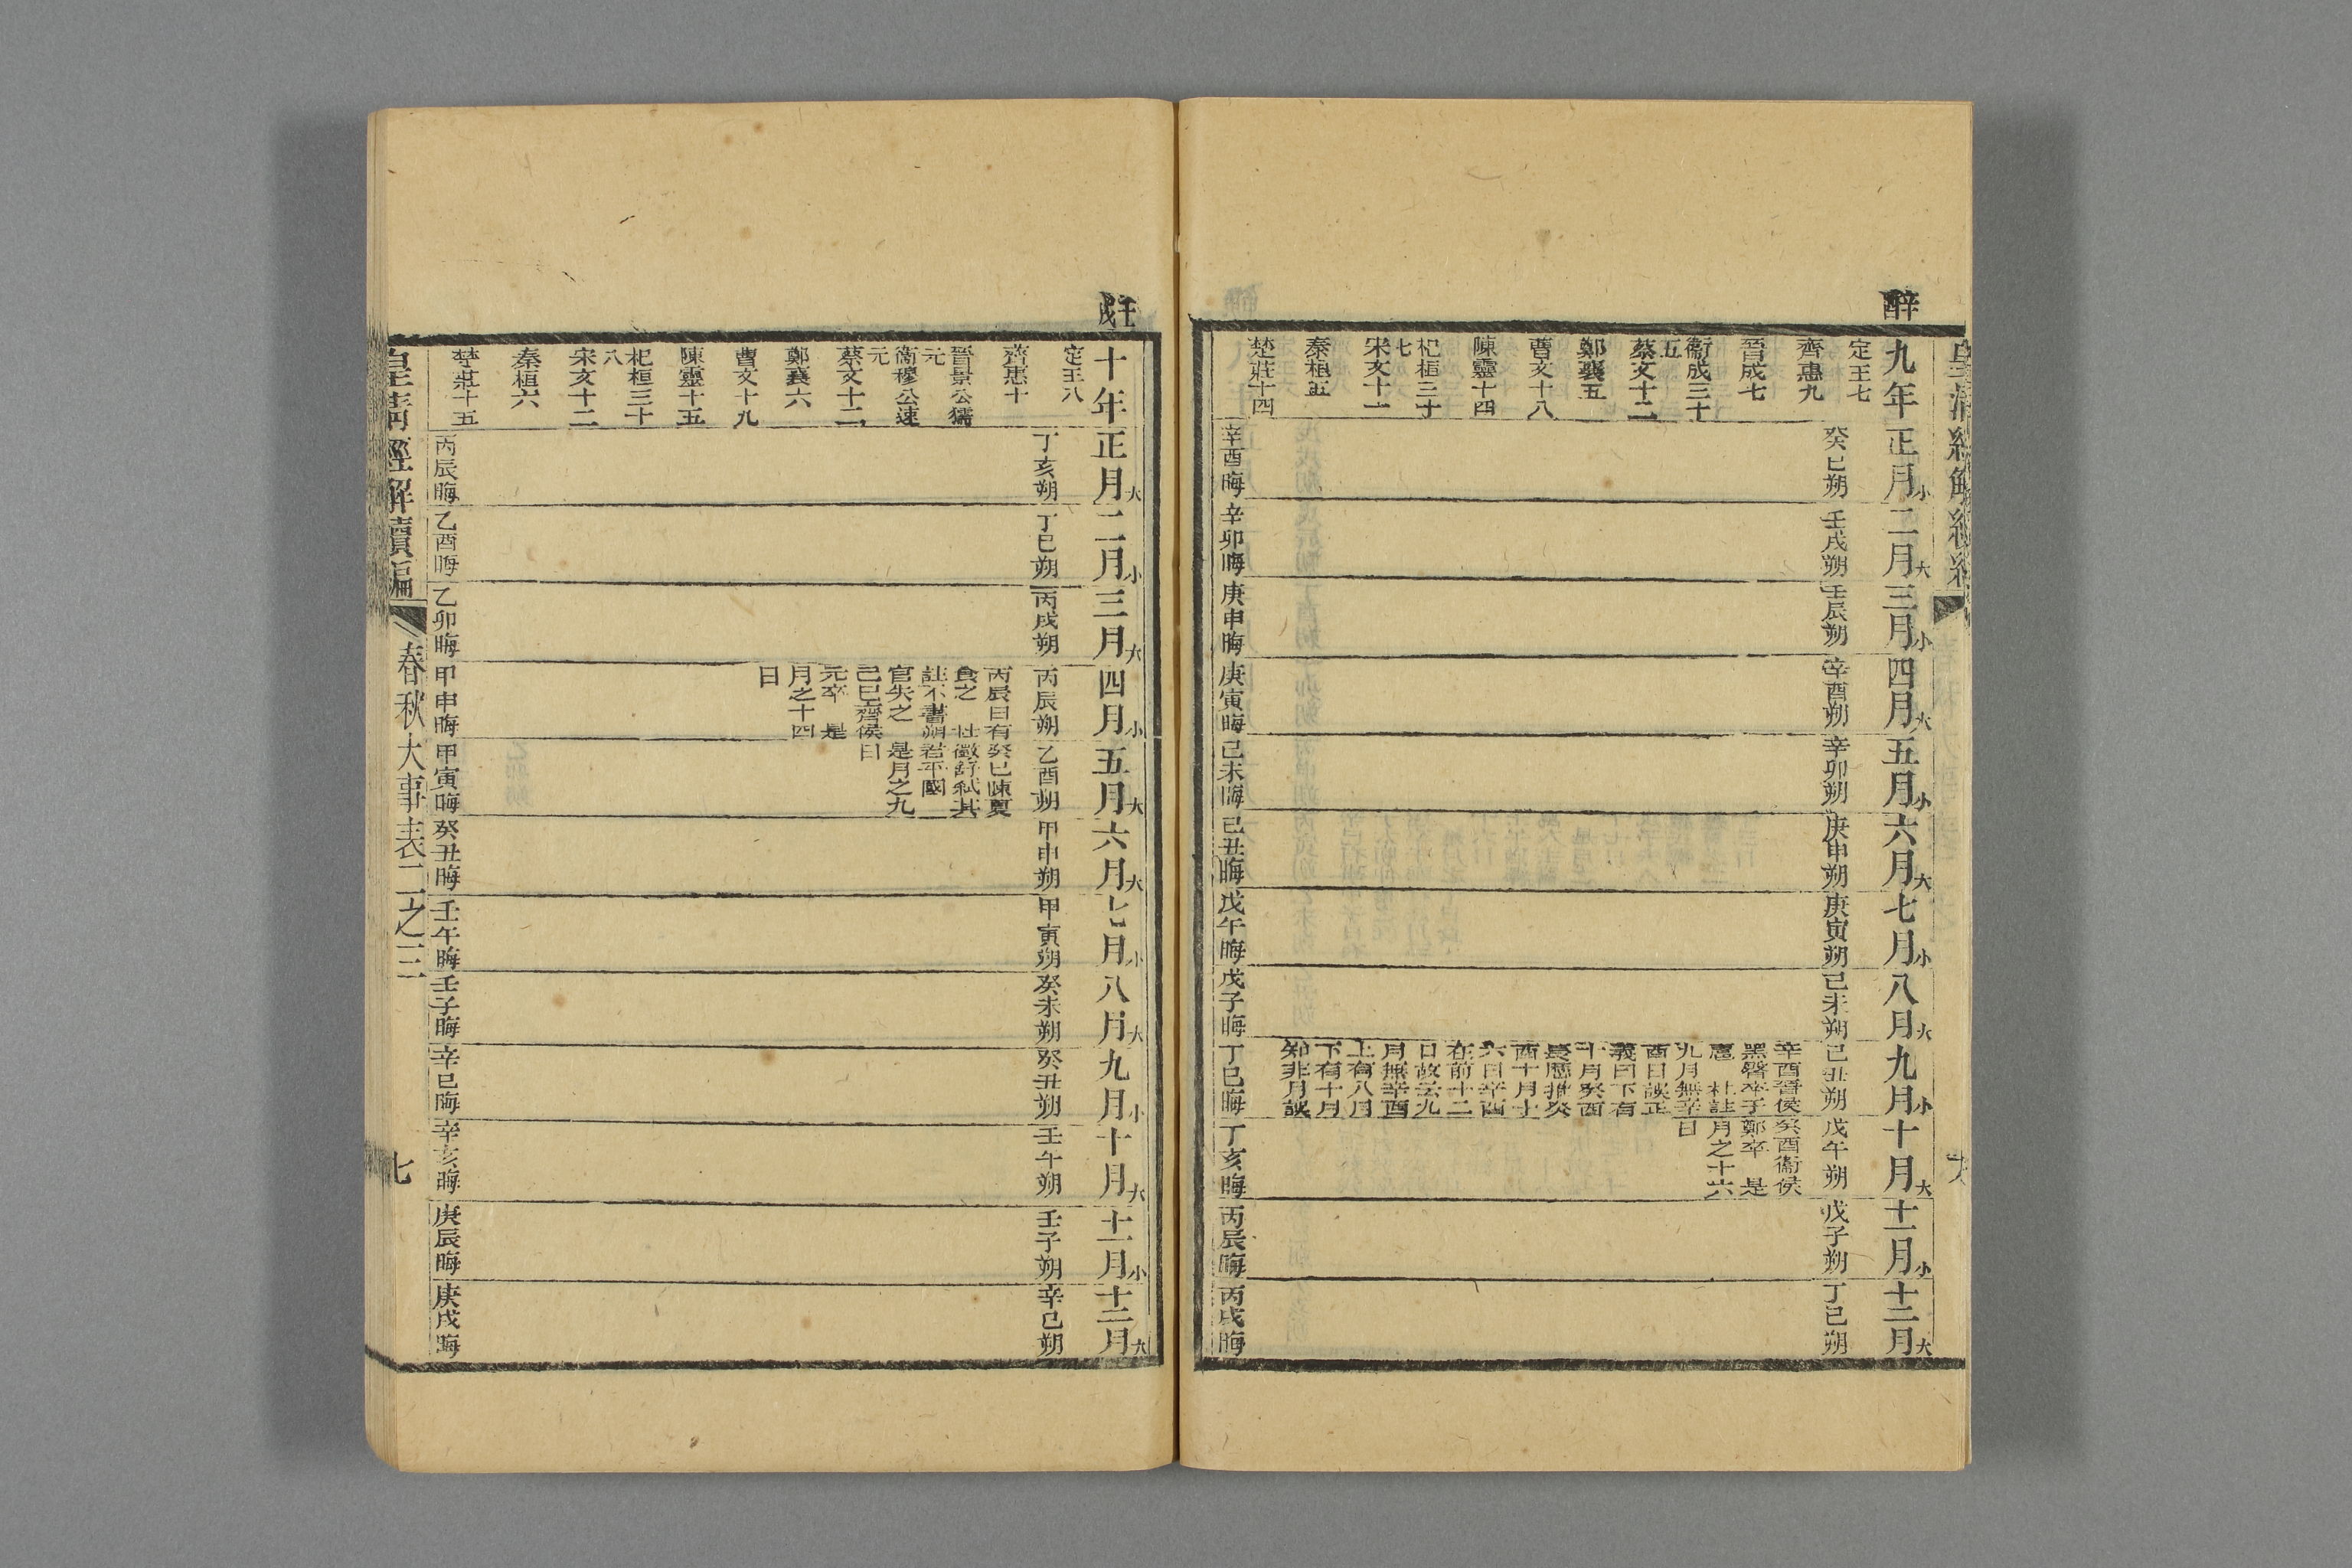 辛酉
九年
定王七
齊惠九
晉成七
衞成三十五
蔡文十二
鄭襄五
曹文十八
陳靈十四
杞桓三十七
宋文十一
秦桓五
楚莊十四
正月小
癸巳朔
辛酉晦
二月大
壬戌朔
辛卯晦
三月小
壬辰朔
庚申晦
四月大
辛酉朔
庚寅晦
五月小
辛卯朔
己未晦
六月大
庚申朔
己丑晦
七月小
庚寅朔
戊午晦
八月大
己未朔
戊子晦
九月小
己丑朔
辛酉晉侯
黑臀卒于
扈　杜註
九月無辛
酉日誤正
義曰下有
十月癸酉
長厯推癸
酉十月十
六日辛酉
在前十二
日故云九
月無辛酉
上有八月
下有十月
知非月誤
丁巳晦
十月大
戊午朔
癸酉衞侯
鄭卒　是
月之十六
日
丁亥晦
十一月小
戊子朔
丙辰晦
十二月大
丁巳朔
丙戌晦
壬戌
十年
定王八
齊惠十
晉景公獳元
衞穆公速元
蔡文十三
鄭襄六
曹文十九
陳靈十五
杞桓三十八
宋文十二
秦桓六
楚莊十五
正月大
丁亥朔
丙辰晦
二月小
丁巳朔
乙酉晦
三月大
丙戌朔
乙卯晦
四月小
丙辰朔
丙辰日有
食之　杜
註不書朔
官失之
己巳齊侯
元卒　是
月之十四
日
甲申晦
五月大
乙酉朔
癸巳陳夏
徵舒弑其
君平國
是月之九
日
甲寅晦
六月大
甲申朔
癸丑晦
七月小
甲寅朔
壬午晦
八月大
癸未朔
壬子晦
九月小
癸丑朔
辛巳晦
十月大
壬午朔
辛亥晦
十一月小
壬子朔
庚辰晦
十二月大
辛巳朔
庚戌晦
皇清經解續編
春秋大事表二之三
七